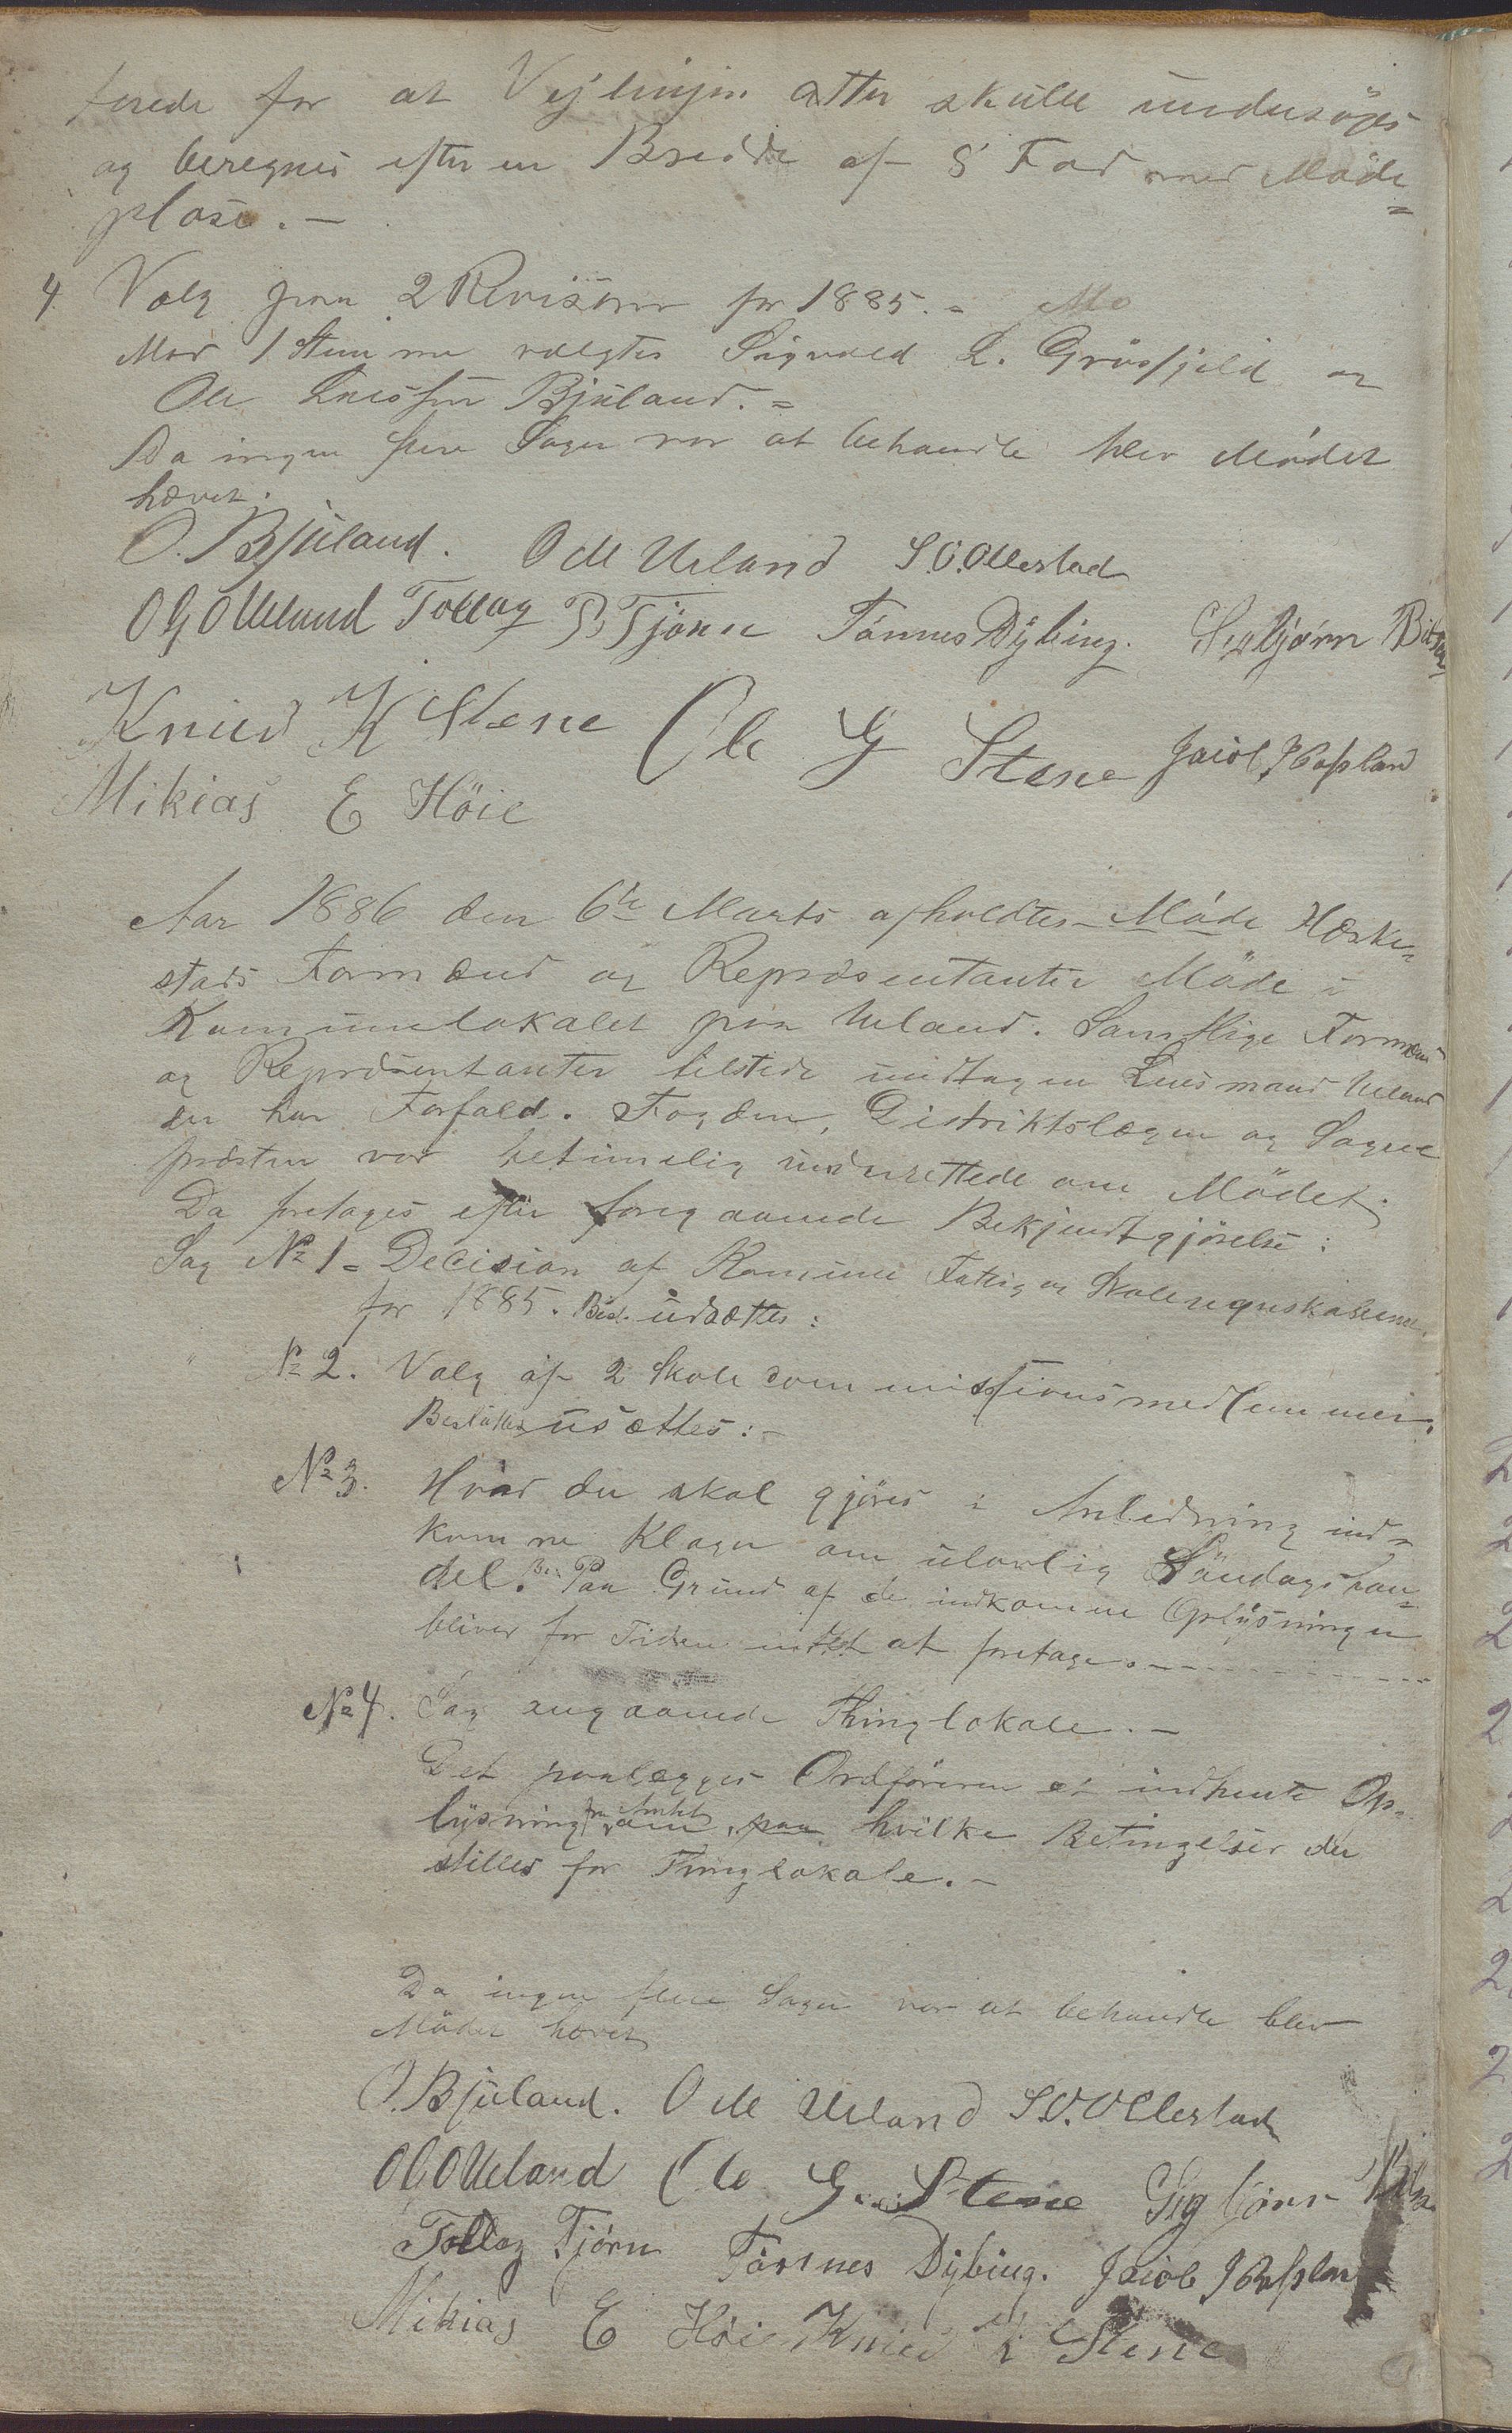 for at Vejlinjen atter skulle undersöges
og beregnes efter en Bredde af 8 Fod med Möde=
plase. –
4 Valg paa 2 Revisorer for 1885. =
Med 1 Stemme valgtes Sigvald L. Grösfjeld og
Ole Larsen Bjuland. =
Da ingen flere Sager var at behandle blev Mödet
hævet.
O. Bjuland. Odd Ueland S.O. Ollestad
O G O Ueland Tollag P Tjörn Tönnes Dybing. Sigbjörn
Knud K Stene Ole G Stene Jacob J
Mikias E Höie
Aar 1886 den 6te Marts afholdtes Möde Heske=
stads Formænd og Repræsentanter Möde i
Kommunelokalet paa Ueland. Samtlige Formænd
og Repræsentanter tilstede undtagen Lensmand Ueland
der har Forfald. Fogden, Distriktslægen og Sogne
præsten var betimelig underrettede om Mödet.
Da foretages efter foregaaende Bekjendtgjörelse:
Sag No 1 = Decision af Kommune Fattig og Skoleregnskaberne
for 1885. Besl. udsættes:
" No 2. Valg af 2 Skolecommissionsmedlemmer.
Besluttes usættes: -
No 3. Hvad der skal gjöres i Anledning ind=
komne Klager om ulovlig Söndagshan=
del. Bes. Paa Grund af de indkomne Oplysninger
bliver for Tiden intet at foretage. - - - - -
No 4. Sag angaaende Thinglokale. –
Det paalægges Ordföreren at indhente Op=
lysning fra Amtet om, paa hvilke Betingelser der
stilles for Thinglokale. –
Da ingen flere Sager var at behandle blev
Mödet hævet
O. Bjuland. Odd Ueland S.O. Ollestad
O G O Ueland Ole G. Stene Sigbjörn
Tollag Tjörn Tönnes Dybing. Jacob J
Mikias E Höie Knud K Stene